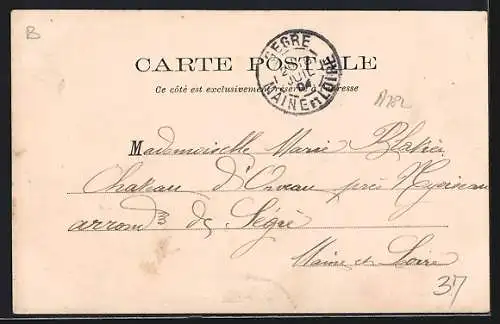 B
SEGRE
JUIL
04
MAINE ET LOIRE
CARTE POSTALE
Ce côté est exclusivement réservé à l'adresse
A782
Mademoiselle Marie
Chateau d'Orveau près Nyoiseau
arrondt de Ségré
Maine et Loire
37